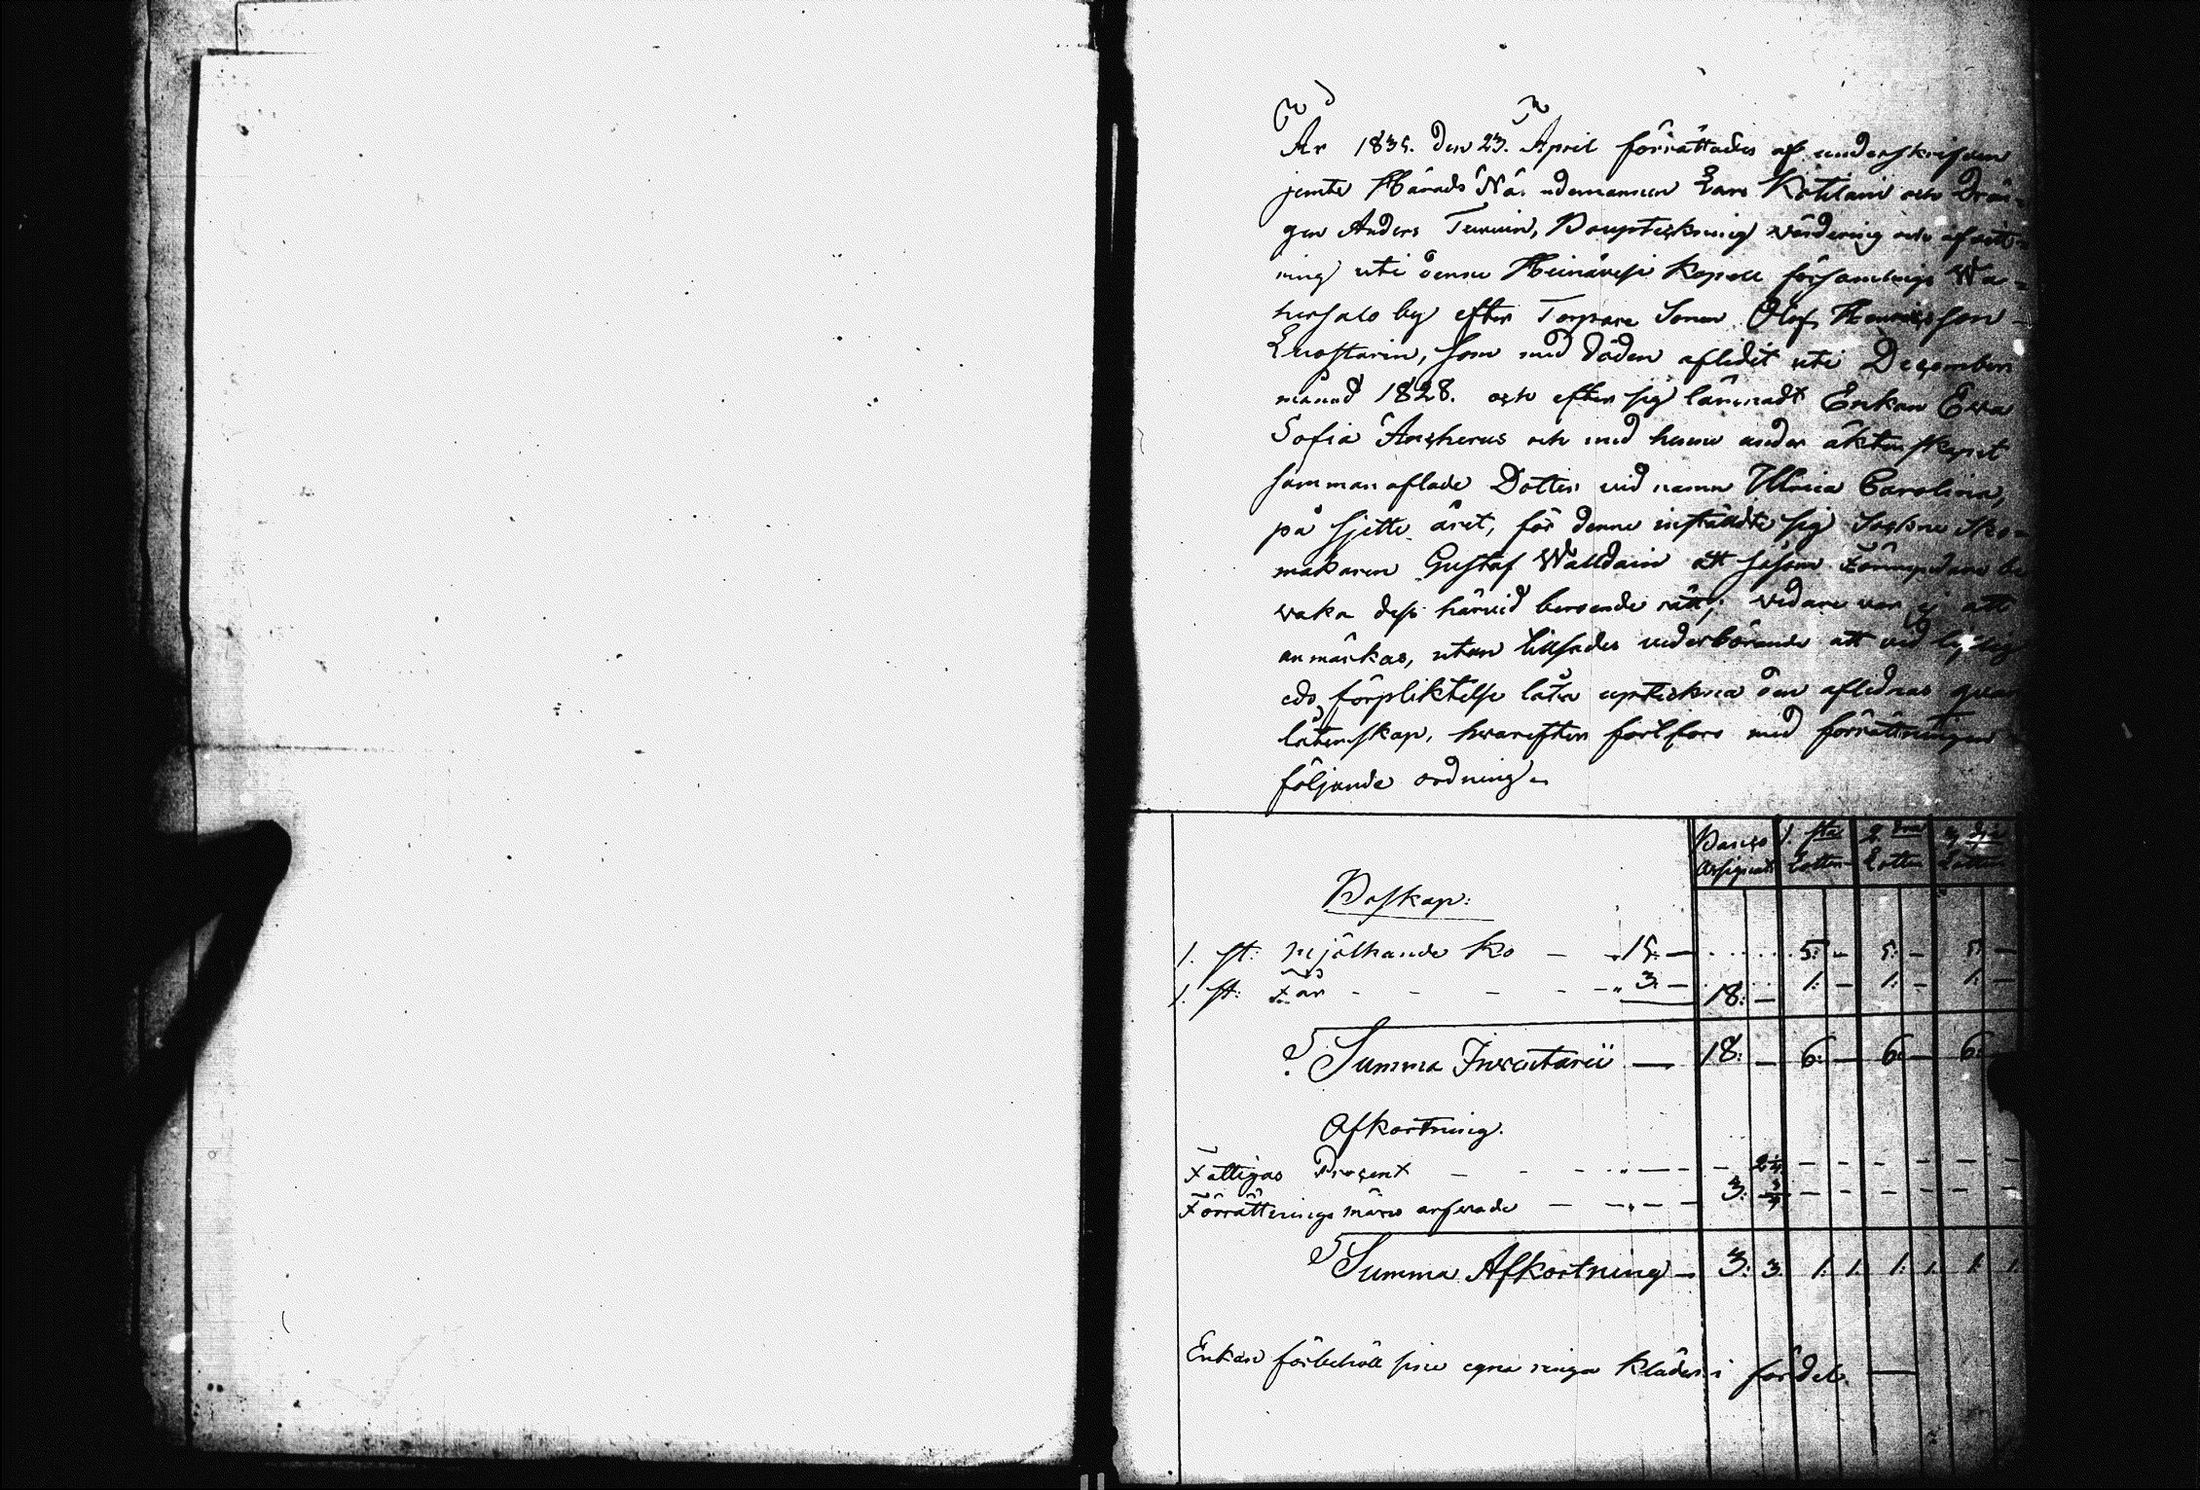 År 1835. den 23. April förrättades af underskrifven
jemte Härads Nä. ndemannen Lars Kötilain och Drän-
gen Anders Turuin, Bouptekning värdering och afvitt-
ring uti denne Heinävesi Kapell församlings Wa-
hersalo by efter Torpare Sonen Olof Henricsson
Luostarin, som med döden aflidit uti December
månad 1828. och efter sig lämnadt Enkan Ewa
Sofia och med henne under äktenskapet
samman aflade Dotter vid namn Ulrica Carolina,
på sjette året, för denne inställdte sig Sockne Sko-
makaren Gustaf Walldain att såsom Förmyndare be
vaka dess härvid beroende rätt; vidare var ej att
anmärkas, utan tillsades vederbörande att vid
eds förpliktelse låta uptekna den aflednas qvar
låtenskap, hvarefter fortfors med förrättningen
följande ordning.
Banco Assignat 1. sta Lotten 2. dra Lotten 3 dje Lotten
Boskap:
1. st: Mjölkande Ko — 15. — 5: — 5: — 5: —
1. st: Får — 3. — 18: — 1: — 1: — 1: —
Summa Inventarii — 18: — 6: — 6: — 6: —
Afkortning.
Fattigas Procent — 2 1/4
Förrättnings mäns arfvode — 3: 3/4
Summa Afkortning — 3: 3. 1: 1. 1: 1. 1: 1.
Enkan förbehöll sine egna ringa kläder i fördel. —